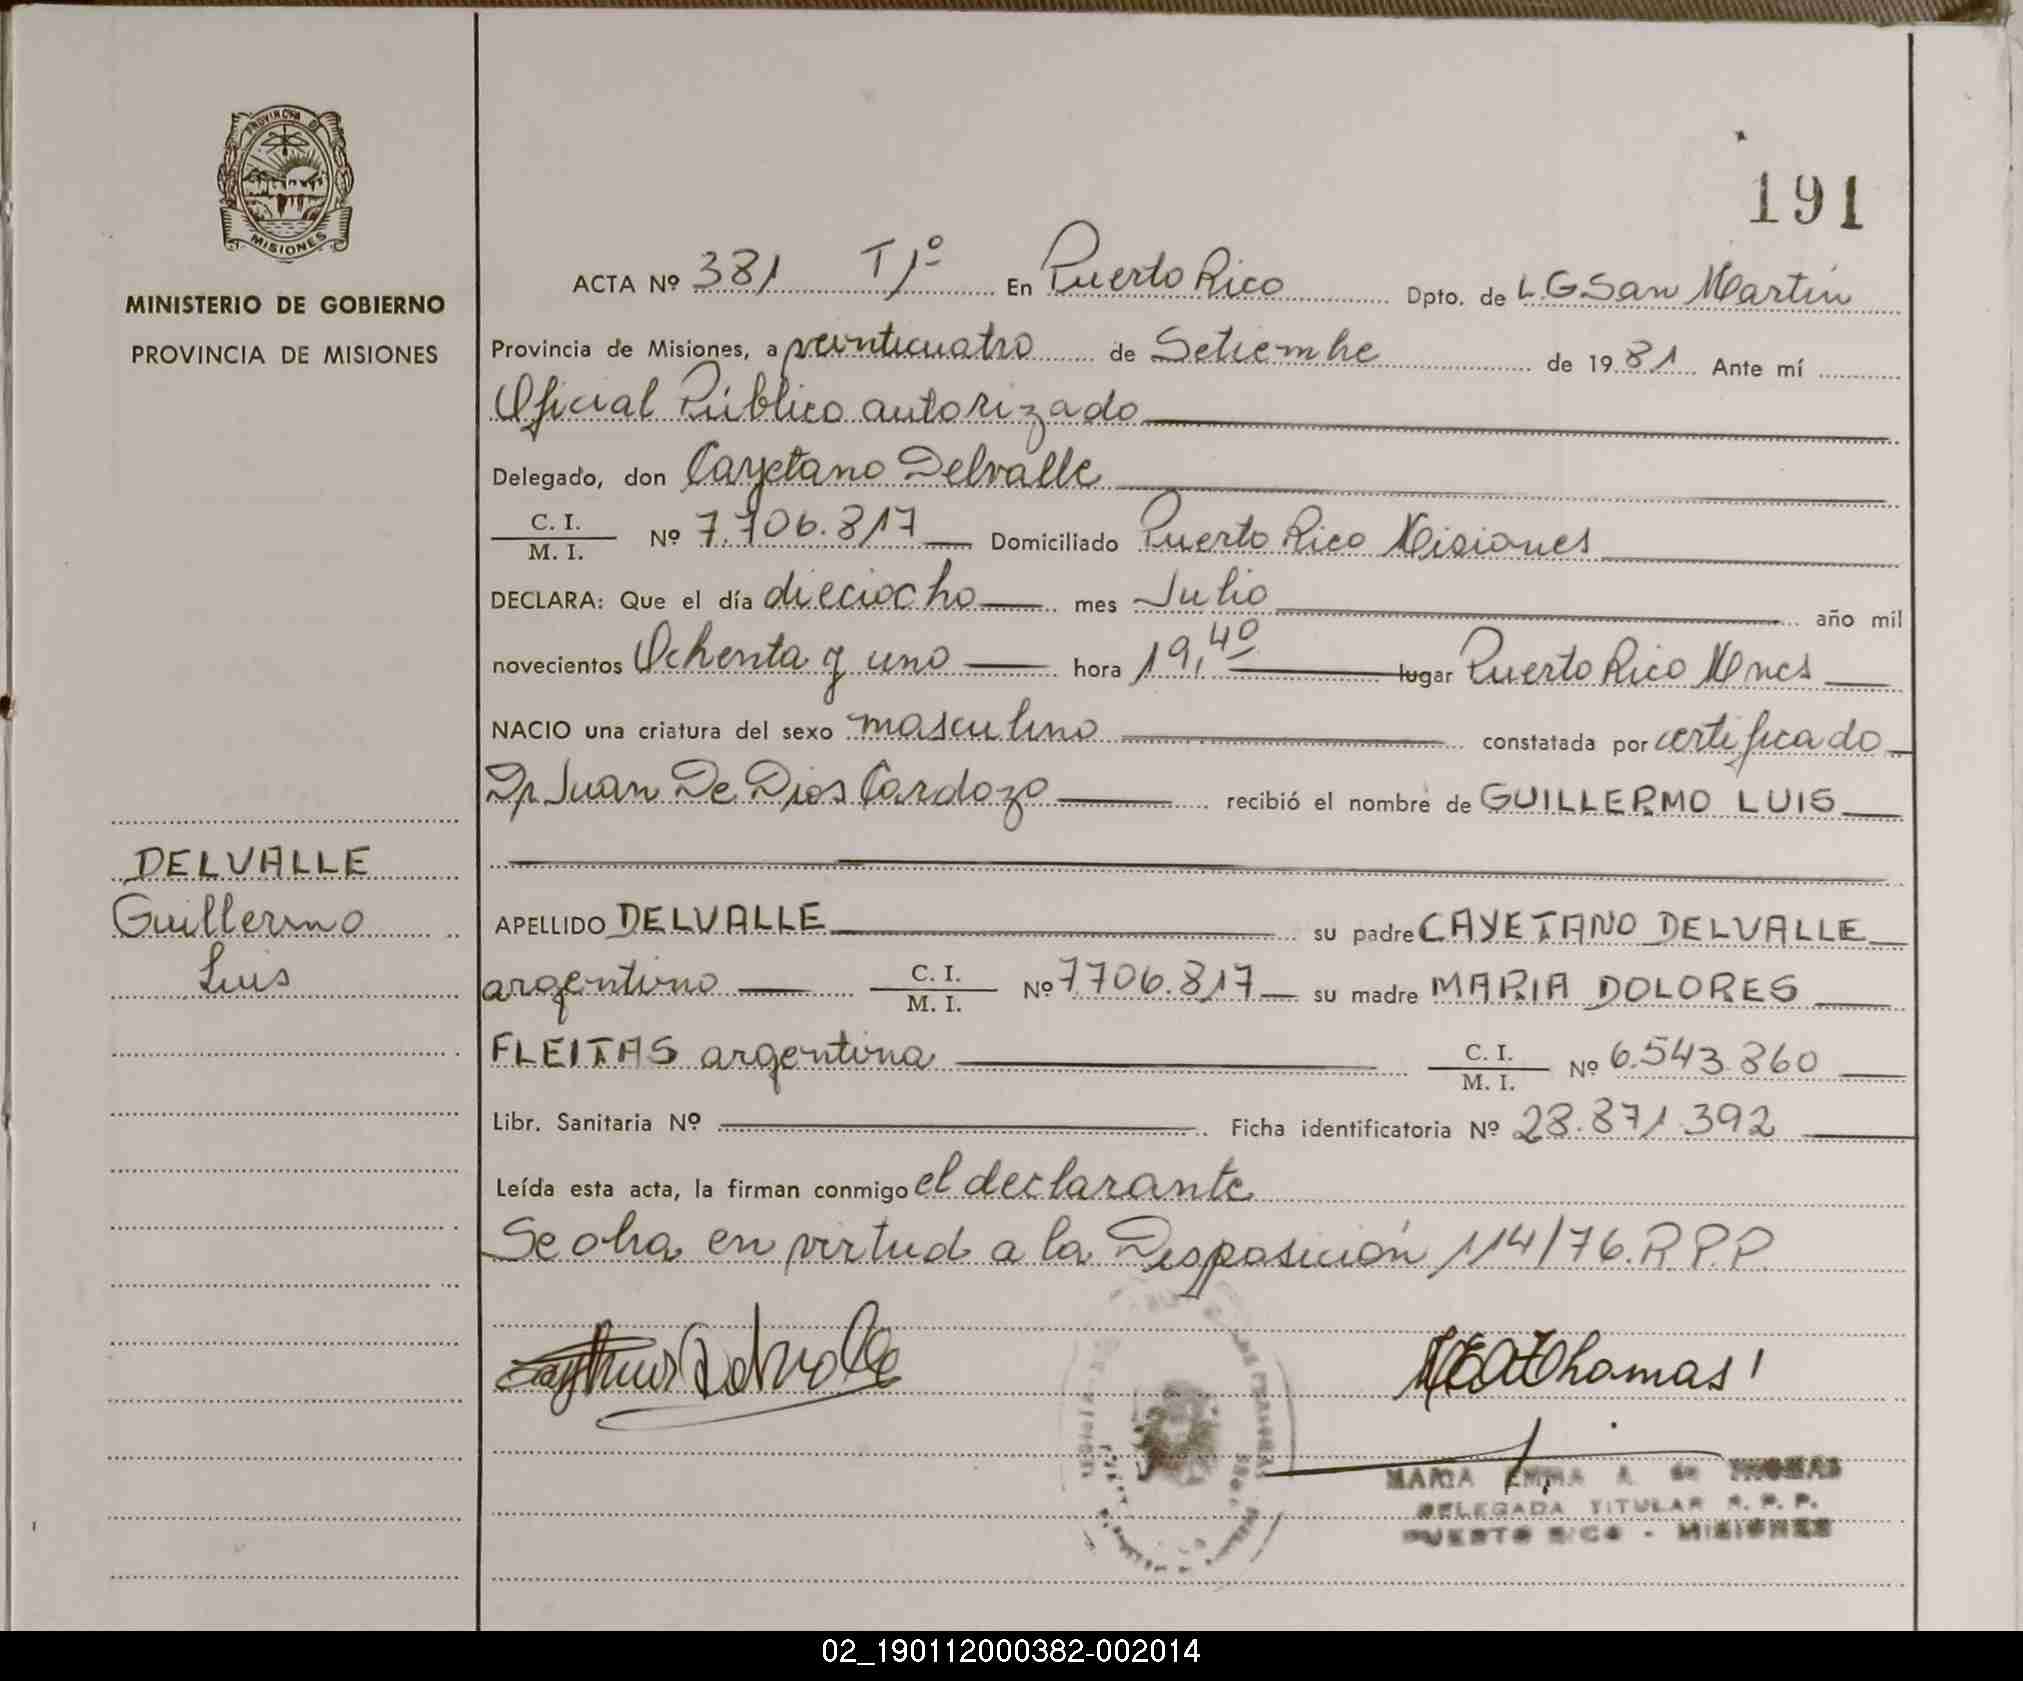 PROVINCIA DE
MISIONES
MINISTERIO DE GOBIERNO
PROVINCIA DE MISIONES
DELVALLE
Guillermo
Luis
191
ACTA Nº 381 T1º En Puerto Rico Dpto. de L.G.San Martín
Provincia de Misiones, a veinticuatro de Setiembre de 1981 Ante mí
Oficial Público autorizado
Delegado, don Cayetano Delvalle
C. I.
M. I. Nº 7.706.817 Domiciliado Puerto Rico Misiones
DECLARA: Que el día dieciocho mes Julio año mil
novecientos Ochenta y uno hora 19,40 lugar Puerto Rico Mnes
NACIO una criatura del sexo masculino constatada por certificado
Dr Juan De Dios Cardozo recibió el nombre de GUILLERMO LUIS
APELLIDO DELVALLE su padre CAYETANO DELVALLE
argentino C. I.
M. I. Nº 7706.817 su madre MARIA DOLORES
FLEITAS argentina C. I.
M. I. Nº 6.543.860
Libr. Sanitaria Nº Ficha identificatoria Nº 28.871.392
Leída esta acta, la firman conmigo el declarante
Se obra en virtud a la Disposición 114/76.R.P.P.
MARIA EMMA A. de THOMAS
DELEGADA TITULAR R. P. P.
PUERTO RICO - MISIONES
02_190112000382-002014